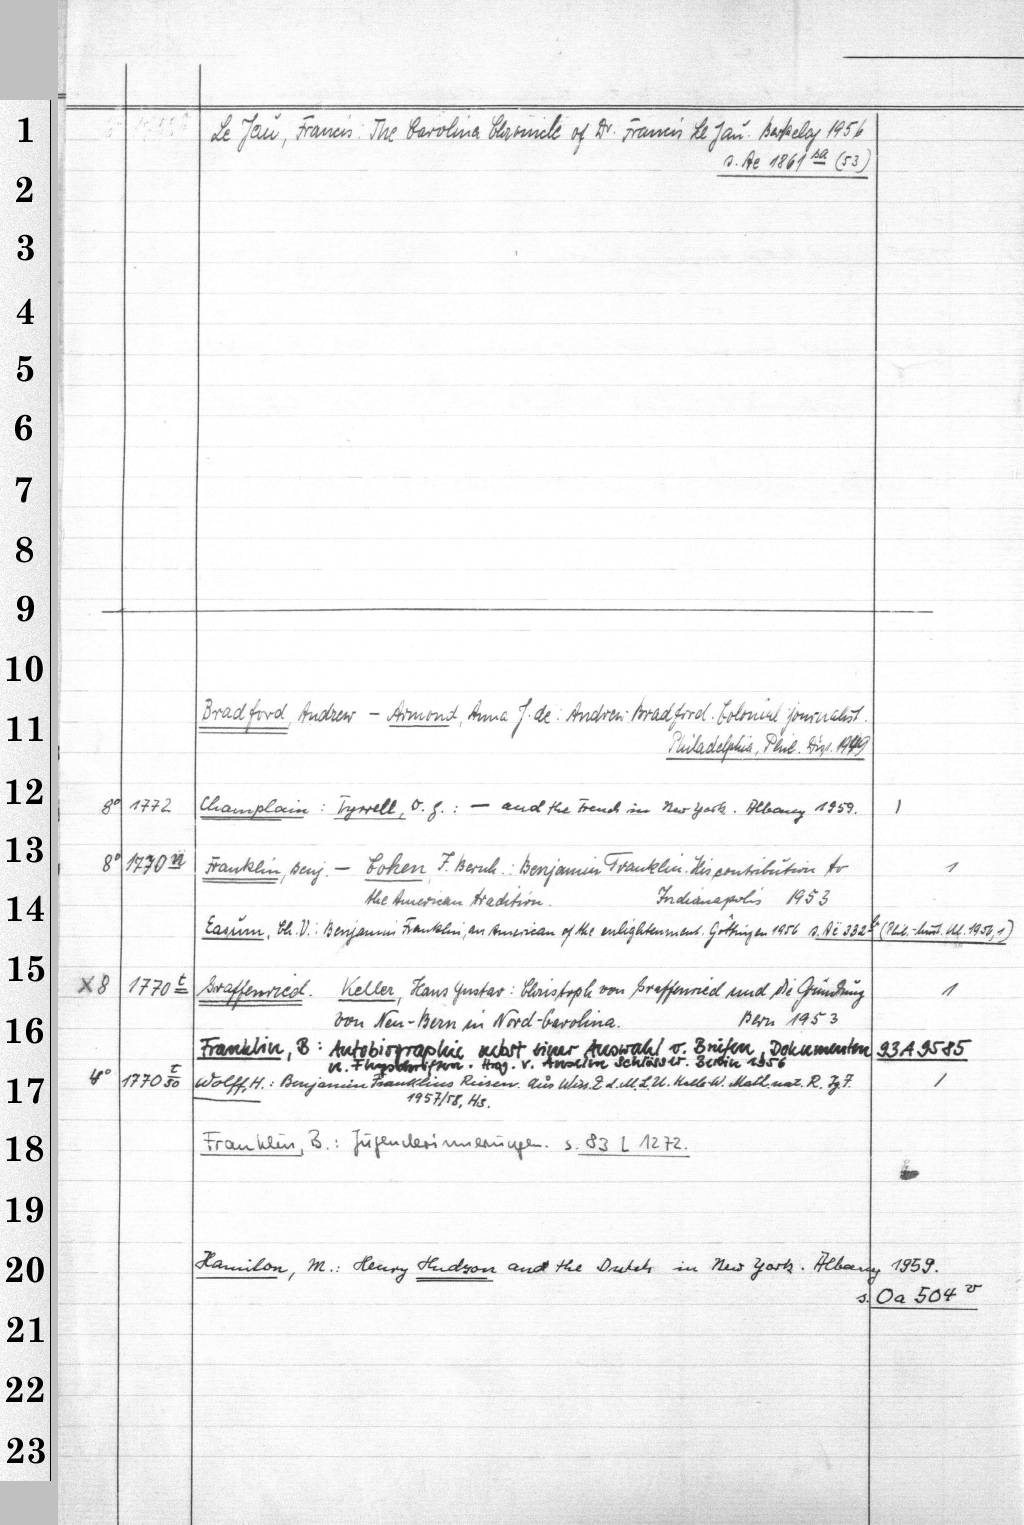 1
Le Jau, Francis: The Carolina Chronicle of Dr. Francis Le Jau. Berkeley 1956
s. Ae 1861 sa (53)
2
3
4
5
6
7
8
9
10
11
Bradford, Andrew – Armond, Anna J. de: Andrew Bradford. Colonial journalist.
Philadelphia, Phil. Diss. 1949
12
8° 1772 Champlain: Tyrrell, O. g.: — and the French in New York. Albany 1959. 1
13
8° 1770 n Franklin, Benj. — Cohen, J. Bernh.: Benjamin Franklin. His contribution to 1
14
the American tradition. Indianapolis 1953
Easum, Ch. V.: Benjamin Franklin, an American of the enlightenment. Göttingen 1956 s. Aë 332 b (Phil.-hist. Kl. 1956, 1)
15
X8 1770 t Graffenried. Keller, Hans Gustav: Christoph von Graffenried und die Gründung 1
16
von Neu-Bern in Nord-Carolina. Bern 1953
Franklin, B: Autobiographie nebst einer Auswahl v. Briefen, Dokumenten 93A9585
u. Flugschriften. Hrsg. v. Anselm Schlösser. Berlin 1956
17
4° 1770 t/50 Wolff, H.: Benjamin Franklins Reisen. Aus Wiss. Z. d. M. L. U. Halle-W. Math. nat. R. Jg 7. 1
1957/58, H5.
18
Franklin, B.: Jugenderinnerungen. s. 83 L 1272.
19
20
Hamilon, M.: Henry Hudson and the Dutch in New York. Albany 1959.
s. Oa 504 v
21
22
23